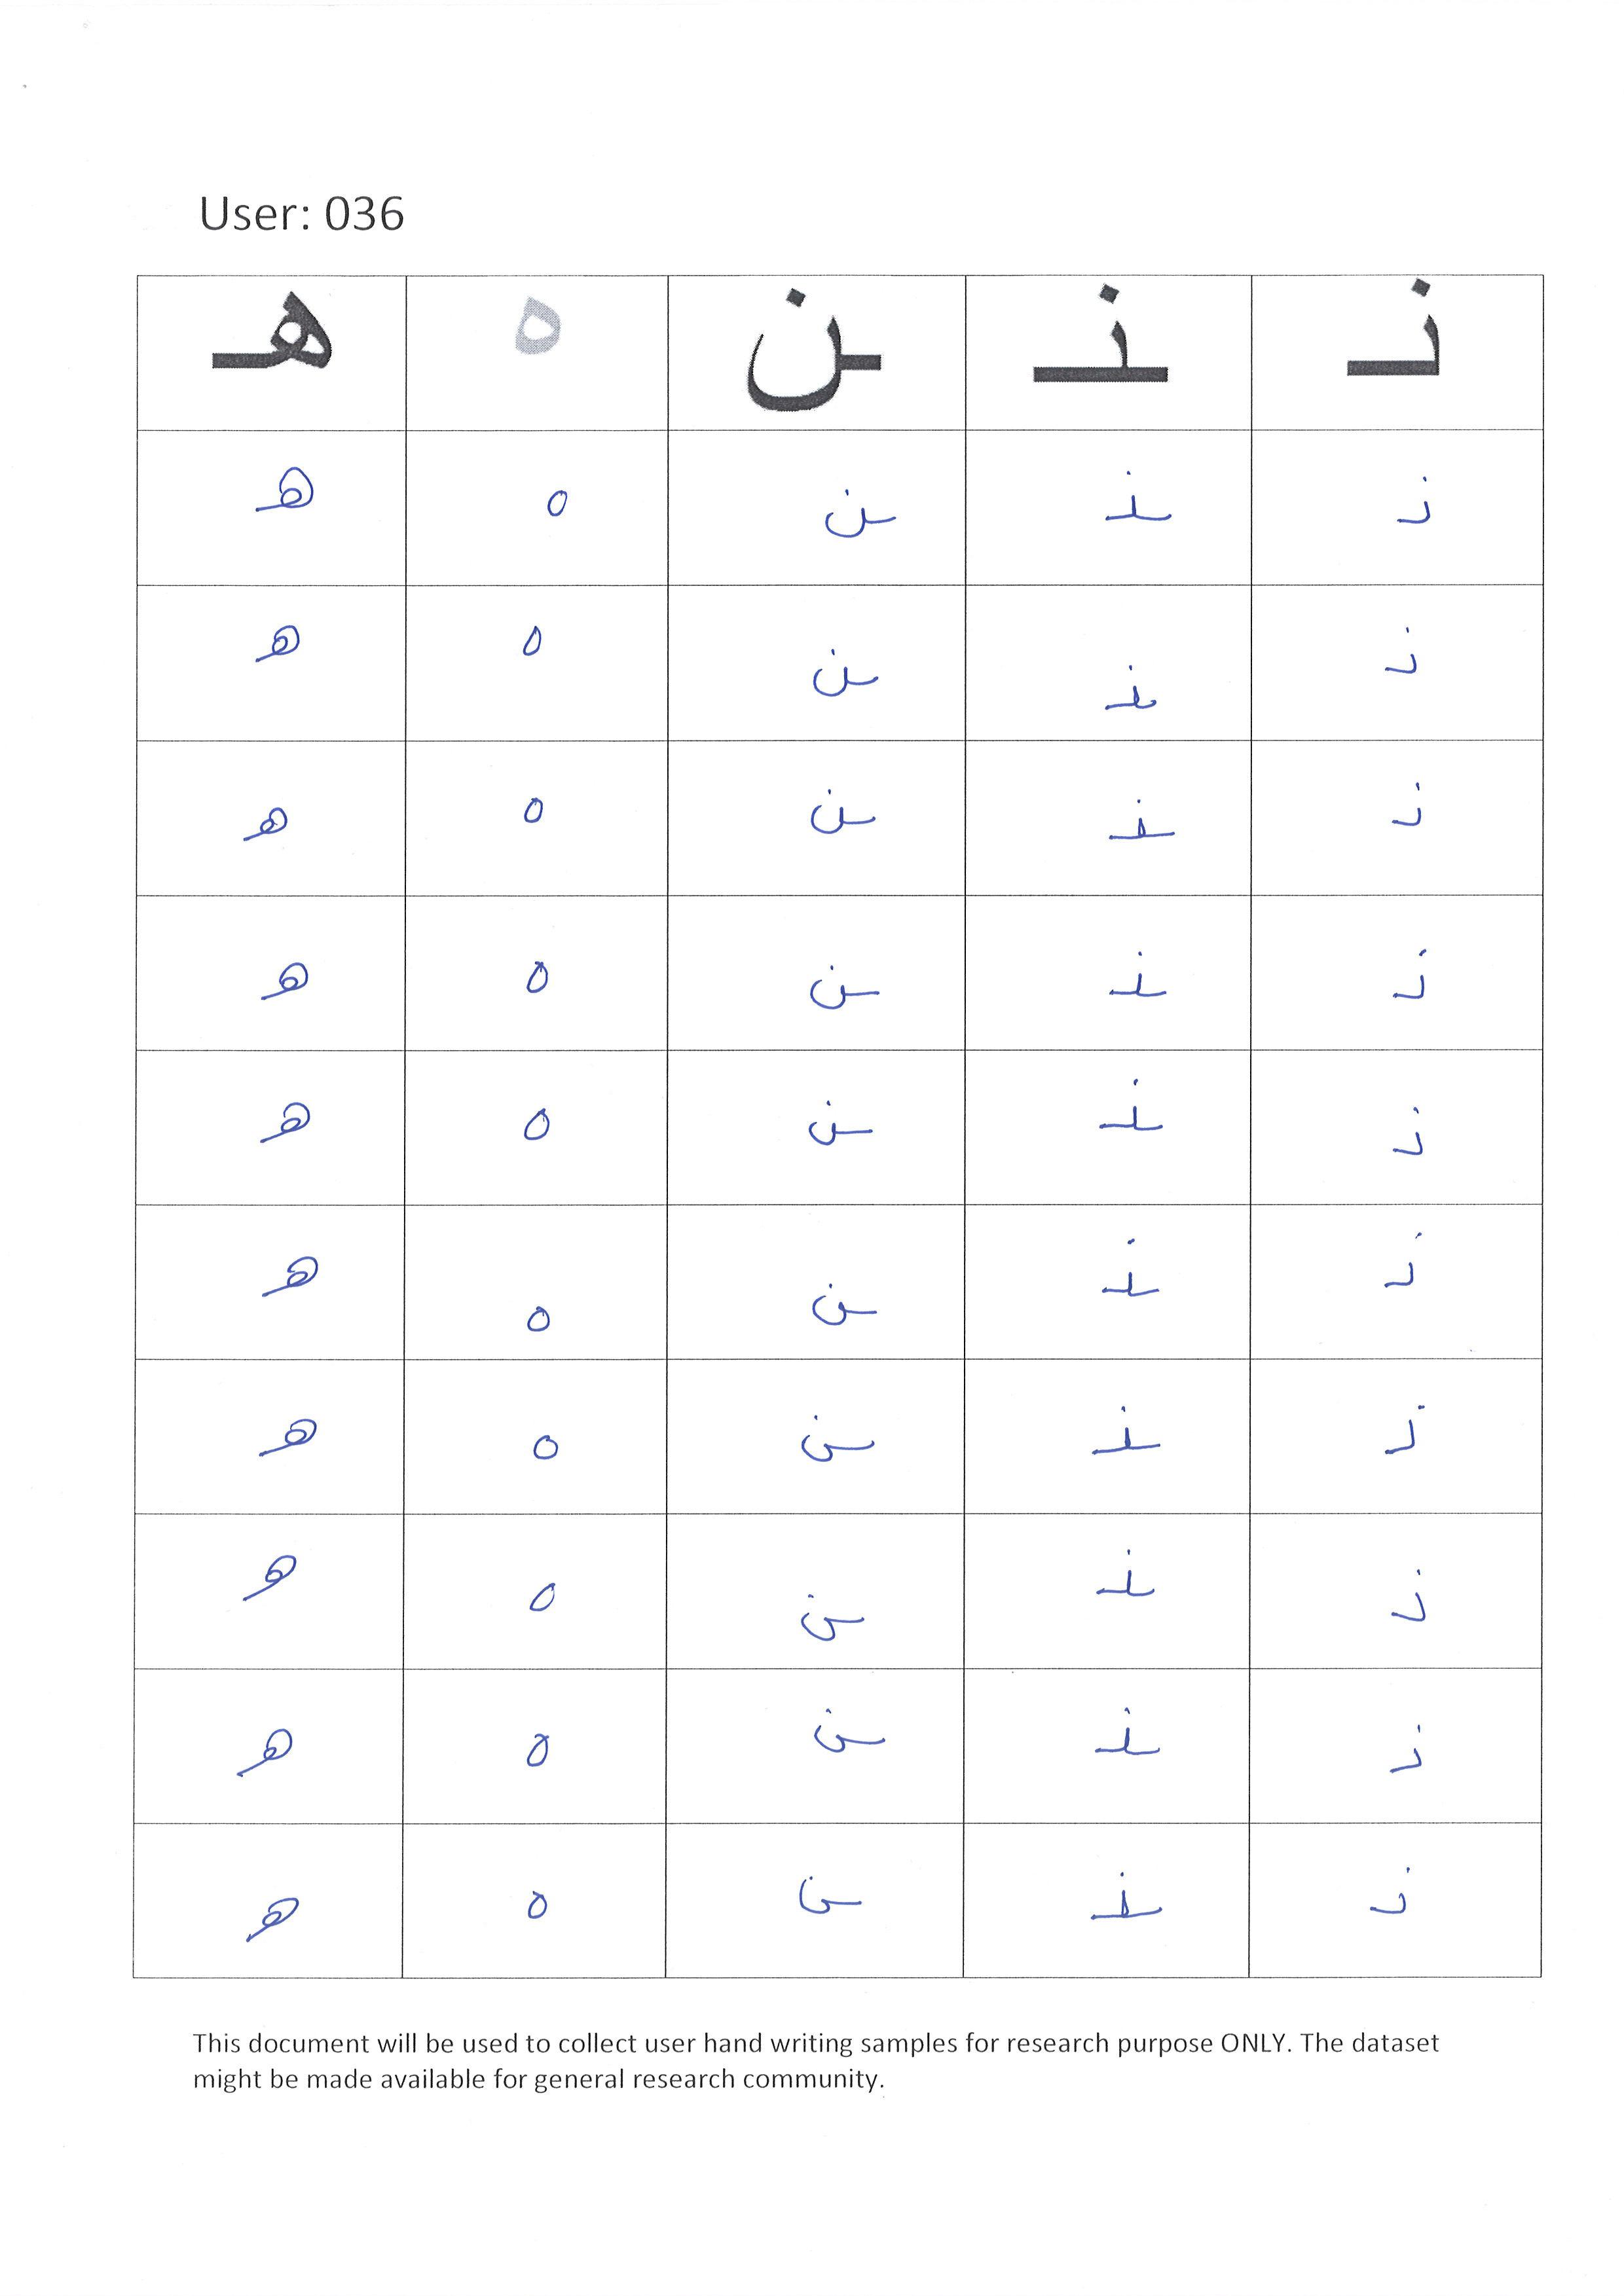 User: 036
نـ ـنـ ـن ه هـ
نـ ـنـ ـن ه هـ
نـ ـنـ ـن ه هـ
نـ ـنـ ـن ه هـ
نـ ـنـ ـن ه هـ
نـ ـنـ ـن ه هـ
نـ ـنـ ـن ه هـ
نـ ـنـ ـن ه هـ
نـ ـنـ ـن ه هـ
نـ ـنـ ـن ه هـ
نـ ـنـ ـن ه هـ
This document will be used to collect user hand writing samples for research purpose ONLY. The dataset
might be made available for general research community.